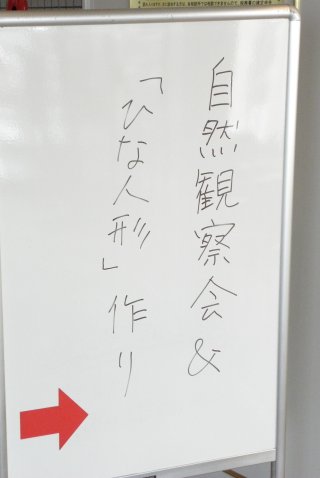 自然観察会&
「ひな人形」作り